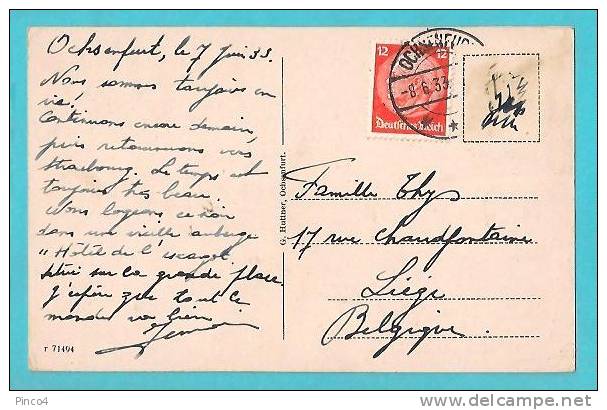 Ochsenfurt, le 7 juin 33.
Nous sommes toujours en
vie.
Continuons encore demain,
puis retournons vers
Strasbourg. Le temps est
toujours très beau.
Nous logeons ce soir
dans une vieille auberge
"Hôtel de l'escargot"
situé sur la grande place.
J'espère que tout le
monde va bien
12 12
Deutsches Reich
OCHSENFURT
-8.6.33
G. Huttner, Ochsenfurt.
Famille Thys
17 rue Chaudfontaine
Liège
Belgique.
r 71494
Pinco4
delcampe.net